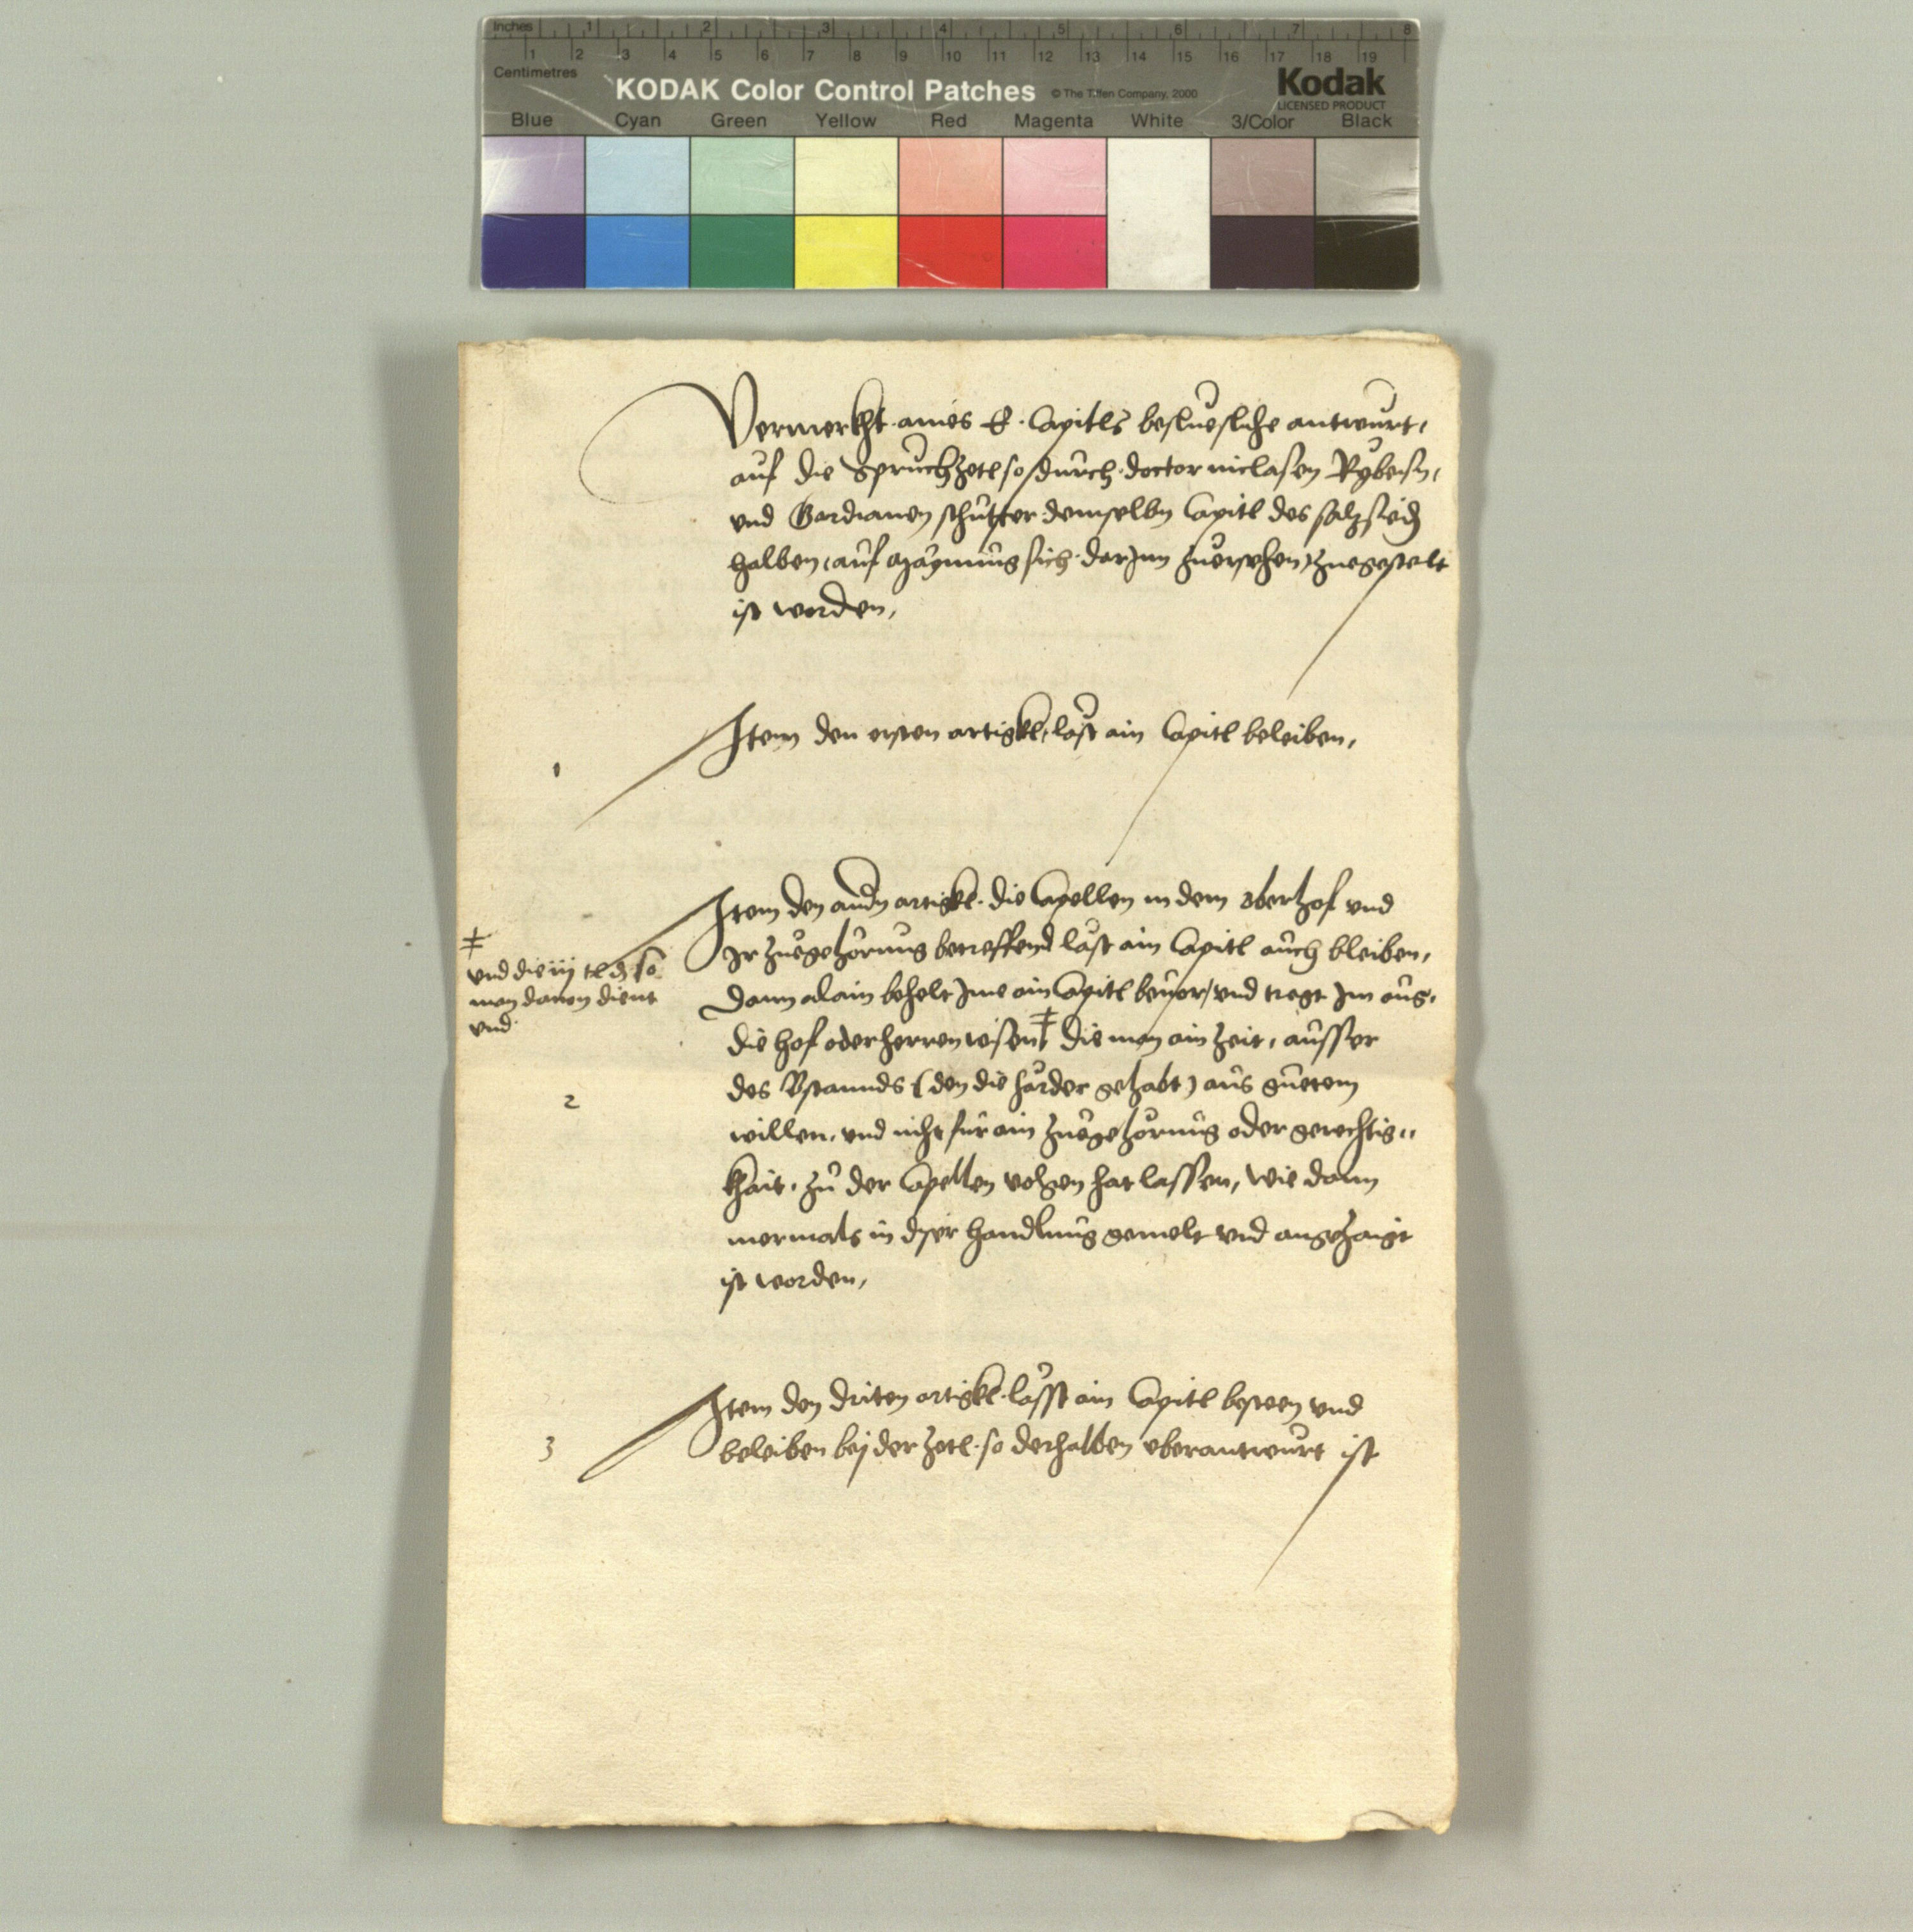 Inches 1 2 3 4 5 6 7 8
1 2 3 4 5 6 7 8 9 10 11 12 13 14 15 16 17 18 19
Centimetres
KODAK Color Control Patches © The Tiffen Company, 2000 Kodak
LICENSED PRODUCT
Blue Cyan Green Yellow Red Magenta White 3/Color Black
Vermerkht aines E. Capitls besluesliche antwurt,
auf die Spruchzetl so durch doctor niclasen Rybeisn,
vnd Gordianen schutter demselbn Capitl des salzsieds
halben, auf maynung sich darJnn zuersehen, zuegestelt
ist worden,
1
Item den ersten artigkl, lasst ain Capitl beleiben,
Item den andn artigkl die Capellen in dem oberhof vnd
Ir zuegehorung betreffend last ain Capitl auch bleiben,
Dann alain behelt Ime ain Capitl beuor, vnd tregt Im aus,
die hof oder herren wisen ‡ die man ain zeit, ausser
des Bstannds (den die harder gehabt) aus guetem
willen, vnd nicht fur ain zuegehorung oder gerechtig,,
khait, zu der Capellen volgen hat lassen, wie dann
mermals in dser handlung gemelt vnd angezaigt
ist worden,
‡
vnd die iij tl d so
man dauon dient
vnd
2
Item den driten artigkl lasst ain Capitl besteen vnd
beleiben bej der zetl so derhalben vberantwurt ist
3